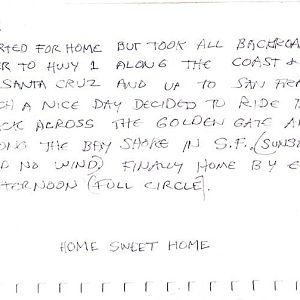 RTED FOR HOME BUT TOOK ALL BACKROA
ER TO HWY 1 ALONG THE COAST &
SANTA CRUZ AND UP TO SAN FRA
CH A NICE DAY DECIDED TO RIDE T
CK ACROSS THE GOLDEN GATE A
ONG THE BAY SHORE IN S.F. (SUNS
D NO WIND) FINALLY HOME BY E
TERNOON (FULL CIRCLE).
HOME SWEET HOME